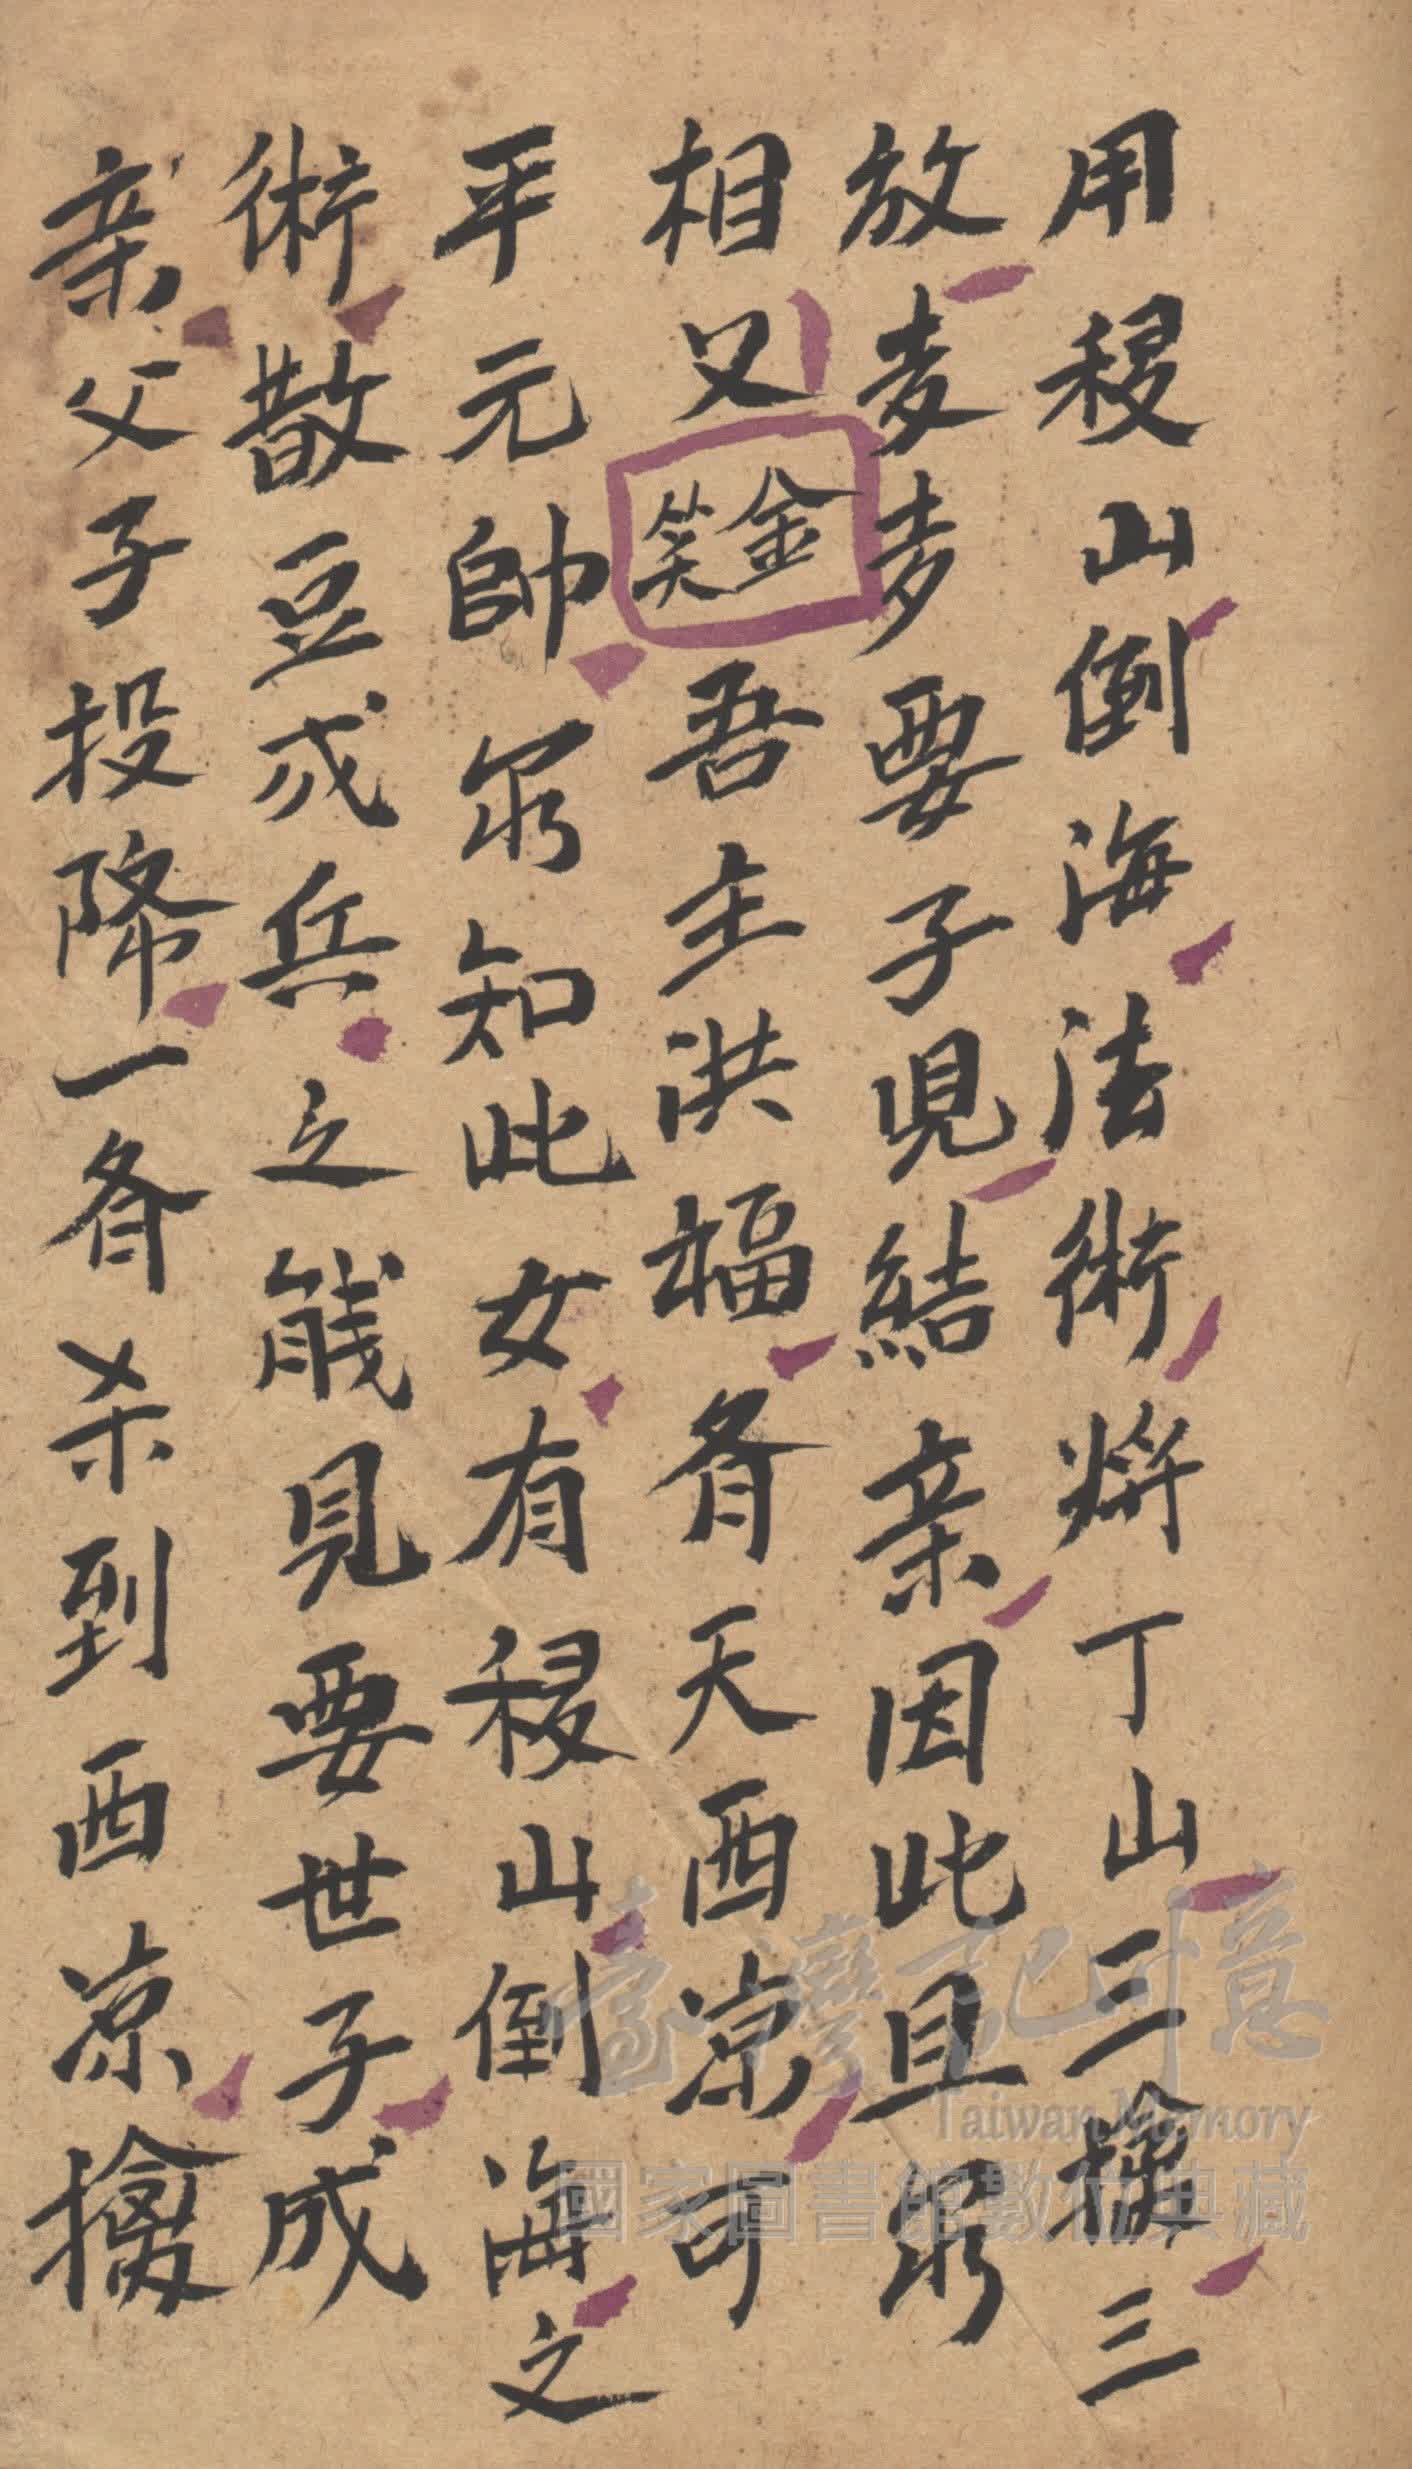 用移山倒海法術將丁山三擒三
放麦麦要子児結亲因此且
相又金笑吾主洪福育天西凉可
平元帥尔知此女有移山倒海之
術散豆成兵之能見要世子成
亲父子投降一育杀到西凉擒
臺灣記憶
Taiwan Memory
國家圖書館數位典藏